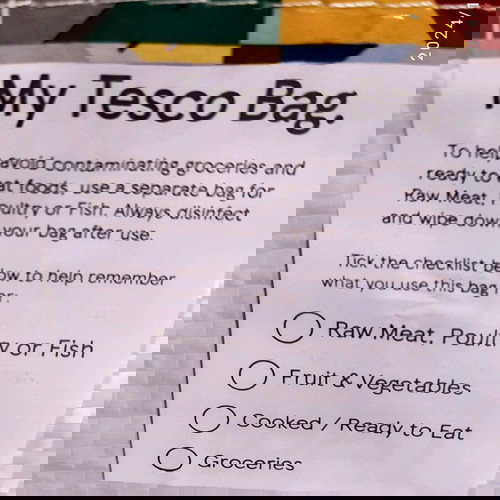 2024/1
My Tesco Bag.
To help avoid contaminating groceries and
ready to eat foods, use a separate bag for
Raw Meat, Poultry or Fish. Always disinfect
and wipe down your bag after use.
Tick the checklist below to help remember
what you use this bag for:
Raw Meat, Poultry or Fish
Fruit & Vegetables
Cooked / Ready to Eat
Groceries